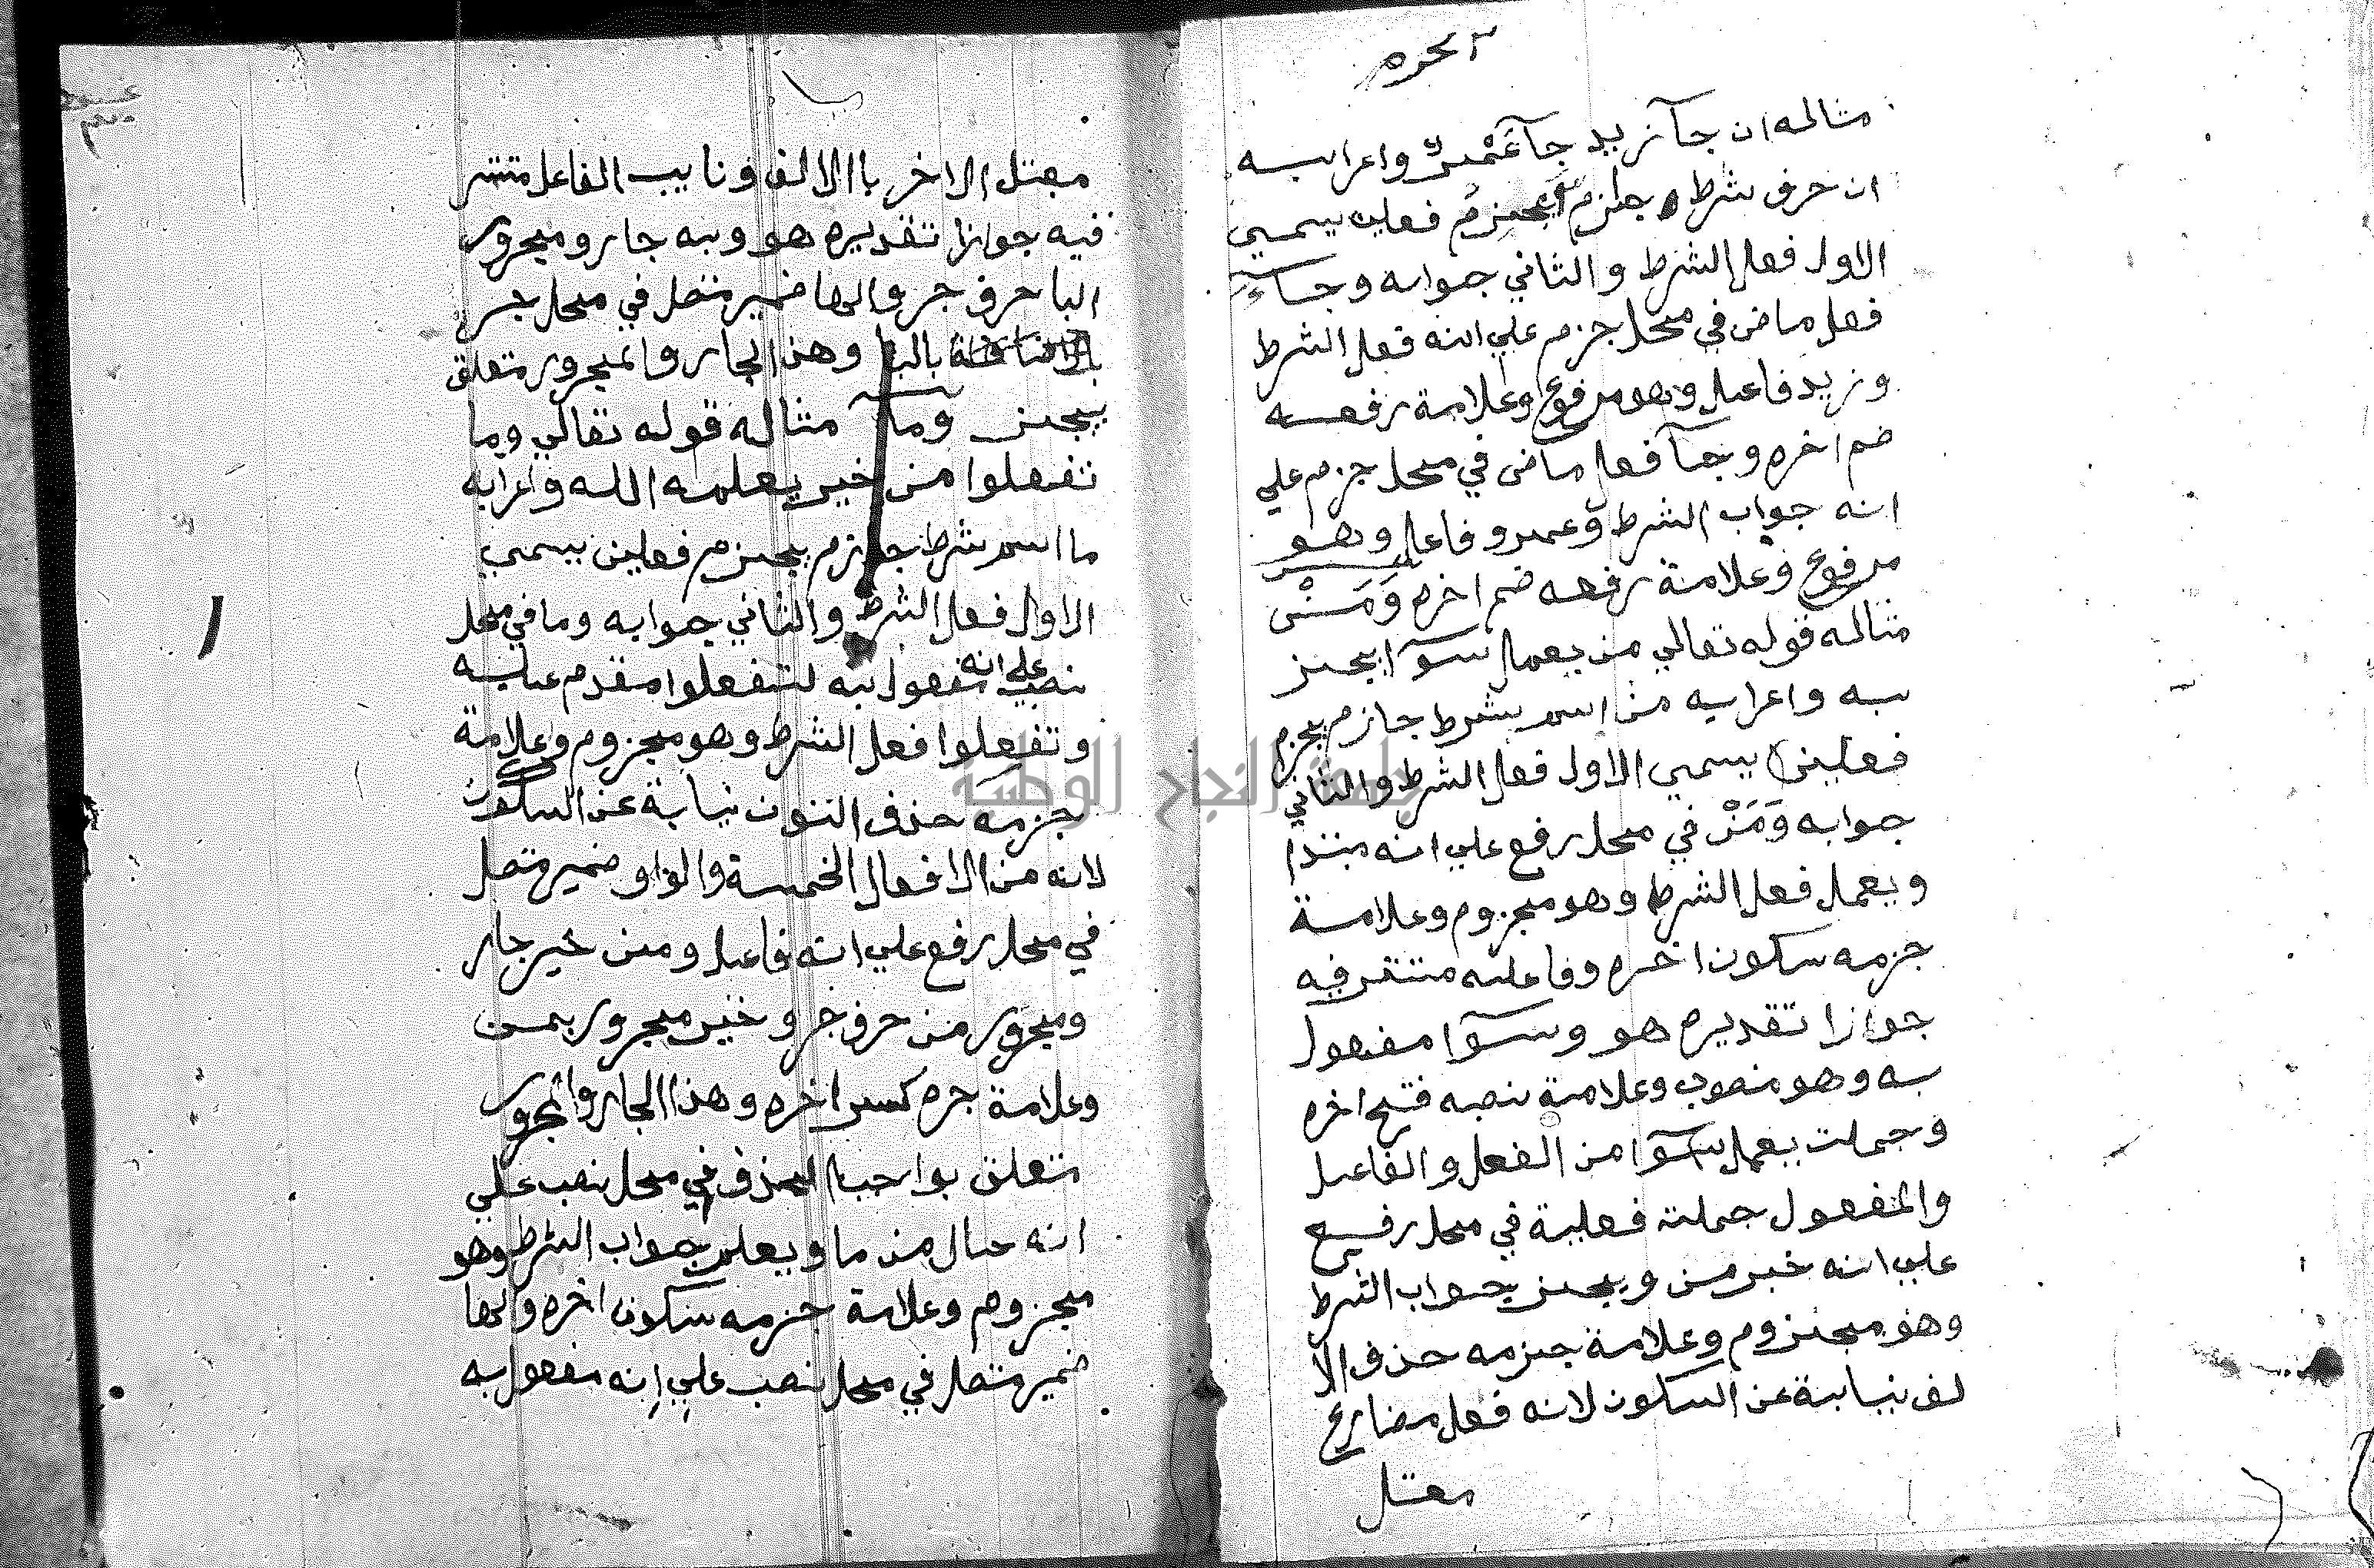 مثاله ان جآ زيد جآ عَمْرٌو واعرابه
ان حرف شرط جازم يجزم فعلين يسمي
الاول فعل الشرط والثاني جوابه وجآء
فعل ماض في محل جزم علي انه فعل الشرط
وزيد فاعل وهو مرفوع وعلامة رفعه
ضم اخره وجآ فعل ماض في محل جزم علي
انه جواب الشرط وعمرو فاعل وهو
مرفوع وعلامة رفعه ضم اخره وَمَنْ
مثاله قوله تعالي من يعمل سوآ يجز
به واعرابه من اسم شرط جازم يجزم
فعلين يسمي الاول فعل الشرط والثاني
جوابه وَمَنْ في محل رفع علي انه مبتدا
ويعمل فعل الشرط وهو مجزوم وعلامة
جزمه سكون اخره وفاعله مستتر فيه
جوازا تقديره هو وسوآ مفعول
به وهو منصوب وعلامة نصبه فتح اخره
وجملت يعمل سوآ من الفعل والفاعل
والمفعول جملة فعلية في محل رفع
علي انه خبر من ويجز جواب الشرط
وهو مجزوم وعلامة جزمه حذف الا
لف نيابة عن السكون لانه فعل مضارع
معتل
معتل الاخر باالالف ونايب الفاعل مستتر
فيه جوازا تقديره هو وبه جار ومجرور
البا حرف جر والها ضمير متصل في محل جر
بالبا وهذا الجار والمجرور متعلق
بيجز وما مثاله قوله تعالي وما
تفعلوا من خير يعلمه الله واعرابه
ما اسم شرط جازم يجزم فعلين يسمي
الاول فعل الشرط والثاني جوابه وما في محل
نصب علي انه مفعول به لتفعلوا مقدم عليه
وتفعلوا فعل الشرط وهو مجزوم وعلامة
جزمه حذف النون نيابة عن السكون
لانه من الافعال الخمسة والواو ضمير متصل
في محل رفع علي انه فاعل ومن خير جار
ومجرور من حرف جر وخير مجرور بمن
وعلامة جره كسر اخره وهذا الجار والمجرور
متعلق بواجب الحذف في محل نصب علي
انه حال من ما ويعلم جواب الشرط وهو
مجزوم وعلامة جزمه سكون اخره والها
ضمير متصل في محل نصب علي انه مفعول به
جامعة النجاح الوطنية